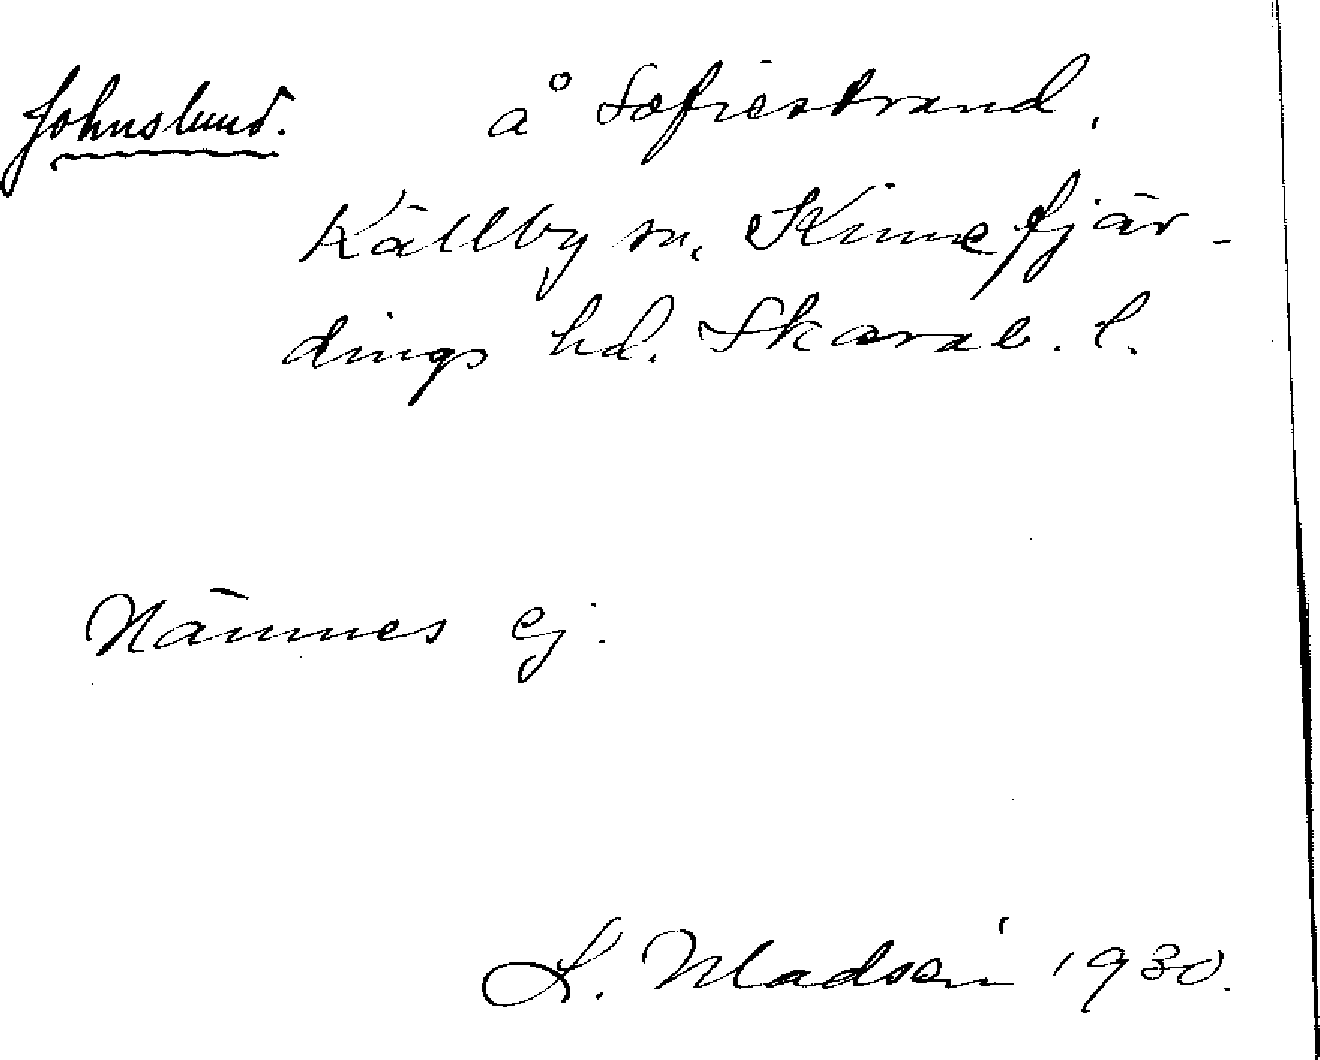 Johnslund. å Sofiestrand,
Källby sn, Kinnefjär-
dings hd. Skarab. l.
Nämnes ej.
L. Madsén 1930.